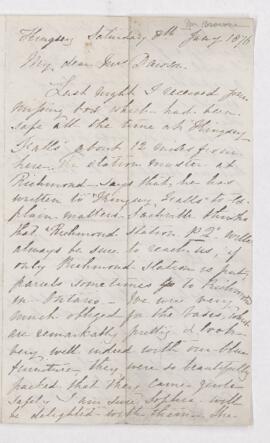 Kingsey Saturday 8th Jany 1876
My dear Mrs Dawson
Last night I received your
missing box which had been
safe all the time at Kingsey
Falls about 12 miles from
here. The station master at
Richmond says that he has
written to Kingsey Falls to ex-
plain matters. thinks
that "Richmond Station P.Q." will
always be sure to reach us, if
only Richmond Station is put
parcels sometimes go to Richmond
in Ontario. We were very
much obliged for the vases, which
are remarkably pretty & look
very well indeed with our blue
furniture, they were so beautifully
packed that they came quite
safely I am sure Sophie will
be delighted with them. She